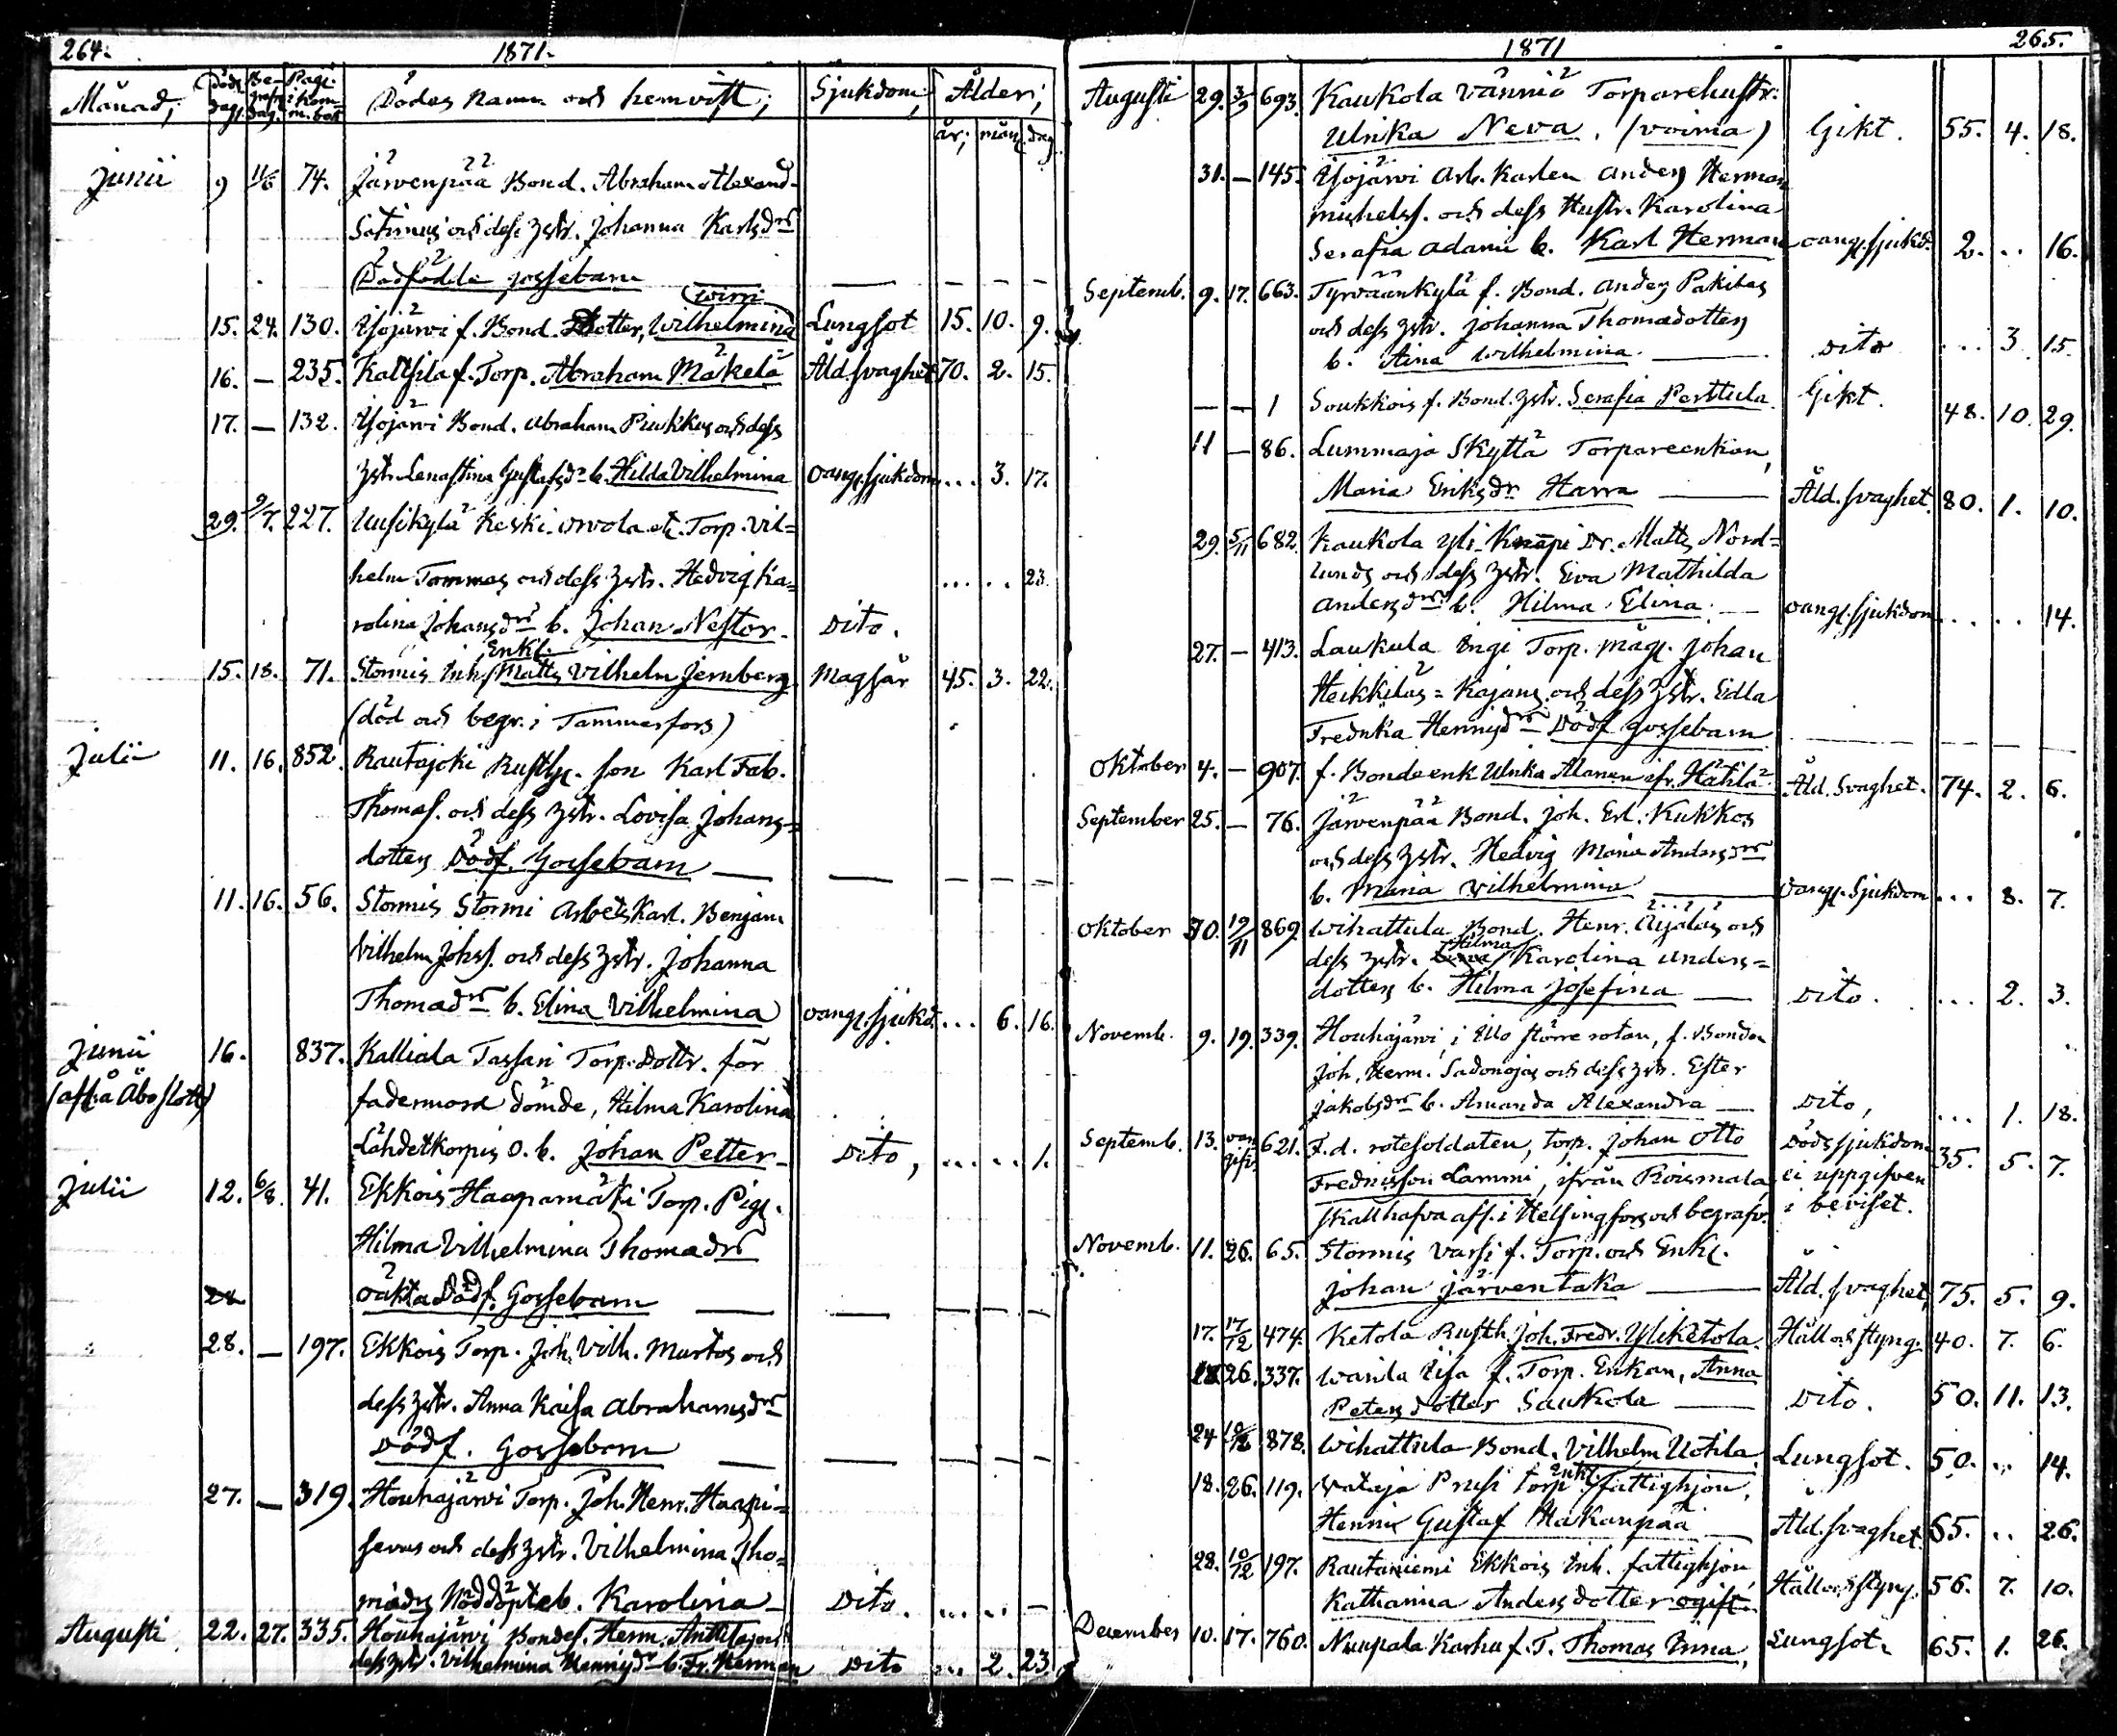 264. 1871.
Månad; Döds dag. Be-grafn. dag. Pagi. i kom-m. bok Dödes namn och hemvist; Sjukdom; Ålder;
år; mån. dag.
Junii 9 11/6 74. Järvenpää Bond. Abraham Alexand.
Satimus och dess hstr. Johanna Karlsdrs
Dödfödde gossebarn — — — —
wirri
15. 24. 130. Ylöjärvi f. Bond. Dotter, Wilhelmina Lungsot 15. 10. 9.
16. — 235. Kallsila f. Torp. Abraham Mäkelä Åld.svaghet 70. 2. 15.
17. — 132. Ylöjärvi Bond. Abraham Piukkus och dess
hstr. Lenastina Gustafsdrs b. Hilda Vilhelmina oang.sjukdom ... 3. 17.
29. 9/7. 227. Uusikylä Keski. Torp. Vil=
helm Tommas och dess hstr. Hedvig Ka= ... .. 23.
rolina Johansdrs b. Johan Nestor. Dito.
Enkl.
15. 18. 71. Stormis Inh. Matts Vilhelm Jernberg Magsår 45. 3. 22.
(död och begr. i Tammerfors)
Julii 11. 16. 852. Rautajoki Rusth. son Karl Fab.
Thomass. och dess hstr. Lovisa Johans=
dotters Dödf. Gossebarn — — — —
11. 16. 56. Stormis Stormi Arbets Karl. Benjam
Vilhelm Johss. och dess hstr. Johanna
Thomadrs b. Elina Vilhelmina oang.sjukd. ... 6. 16.
Junii 16. 837. Kalliala Tassari Torp. Dottr. för
(afl. å Åbo slott) fadermord dömde, Hilma Karolina
Lähdetkorpis o. b. Johan Petter Dito, ... .. 1.
Julii 12. 6/8. 41. Ekkois Haapamäki Torp. Pig.
Hilma Vilhelmina Thomadrs
24 oäkta Dödf. Gossebarn — — — —
28. — 197. Ekkois Torp. Joh. Vilh. Murtos och
dess hstr. Anna Kaisa Abrahamsdrs
Dödf. Gossebarn — — — —
27. — 319 Houhajärvi Torp. Joh. Henr. Haapi=
.. och dess hstr. Vilhelmina Tho=
madrs Nöddöpte b. Karolina Dito. ... .. —
Augusti 22. 27. 335. Houhajärvi Bondes. Herm. Anttilas och
dess hstr. Vilhelmina Henriksdrs b. Fr. Herman Dito ... 2. 23.
1871 265.
Augusti 29. 3/9 693. Kaukola Vänniö Torparehustr.
Ulrika Neva. (voima) Gikt. 55. 4. 18.
31. — 145. Ylöjärvi Arb. Karlen Anders Herman
Michelss. och dess Hustr. Karolina
Serafia Adami b. Karl Herman oang.sjukd. 2. .. 16.
Septemb. 9. 17. 663. Tyrväänkylä f. Bond. Anders Pakitas
och dess hstr. Johanna Thomadotters
b. Aina Wilhelmina. — Dito ... 3 15.
— — 1 Soukkois f. Bond. hstr. Serafia Perttula Gikt. 48. 10. 29.
11 — 86. Lummaja Skyttä Torpareenkan,
Maria Eriksdr Harra — Åld.svaghet. 80. 1. 10.
29. 5/11 682. Kaukola Yli-Knäpi Dr. Matts Nord=
lunds och dess hstr. Eva Mathilda
Andersdrs b. Hilma Elina. — oang.sjukdom ... .. 14.
27. — 413. Laukula Ingi Torp. måg. Johan
Heikkiläs = Kajans och dess hstr. Edla
Fredrika Henriksdrs Dödf. gossebarn — — — —
Oktober 4. — 907. f. Bondeenk Ulrika Alanen ifr. Hätilä Åld. Svaghet. 74. 2. 6.
September 25. — 76. Järvenpää Bond. Joh. Erl. Kukkos
och dess hstr. Hedvig Maria Andersdrs
b. Maria Vilhelmina — oang. Sjukdom ... 8. 7.
Oktober 30. 19/11 869. Wihattula Bond. Henr. Äijäläs och
Hilma
dess hstr. Karolina Anders=
dotters b. Hilma Josefina — Dito. ... 2. 3.
Novemb. 9. 19. 339. Houhajärvi, i Illo större rotan, f. Bonden
Joh. Herm. Sadonojas och dess hstr. Ester
Jakobsdrs b. Amanda Alexandra — Dito, ... 1. 18.
Septemb. 13. 621. F.d. rotesoldaten, torp. Johan Otto Dödssjukdom 35. 5. 7.
Fredriksson Lammi, ifrån Roismala, ej uppgifven
skall hafva afl. i Helsingfors och begrafv. i beviset.
Novemb. 11. 26. 65. Stormis Varsi f. Torp. och Enkl.
Johan Järventaka — Åld.svaghet, 75. 5. 9.
17. 17/12 474. Ketola Rusth. Joh. Fredr. Yliketola. Håll och styng. 40. 7. 6.
18 26. 337. Wanila Eisa f. Torp. Enkan, Anna
Petersdotter Saukola — Dito. 50. 11. 13.
24 10/12 878. Wihattula Bond. Vilhelm Uotila Lungsot. 50. .. 14.
Enkl.
18. 26. 119. Vataja Prusi torp. fattighjon,
Henrik Gustaf Makanpää — Åld.svaghet. 65. .. 26.
28. 10/12 197. Rautaniemi Ekkois Inh. fattighjon,
Katharina Andersdotter ogift. Håll och styng. 56. 7. 10.
December 10. 17. 760. Nuupala Karhu f. T. Thomas Inna, Lungsot. 65. 1. 26.